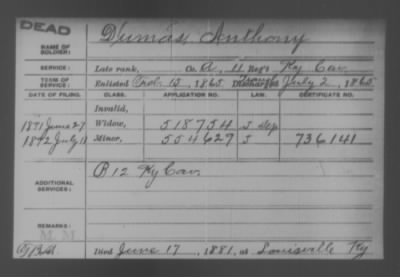 DEAD
NAME OF SOLDIER: Dumas, Anthony
SERVICE: Late rank, Co. A, 11 Reg't Ky Cav.
TERM OF SERVICE: Enlisted Feb. 15, 1865 Discharged July 2, 1865
DATE OF FILING. CLASS. APPLICATION NO. LAW. CERTIFICATE NO.
Invalid,
1891 June 27 Widow, 518754 J Dep
1892 July 11 Minor, 554627 J 736141
ADDITIONAL SERVICES: B 12 Ky Cav
REMARKS:
M M
Died June 17, 1881, at Louisville Ky